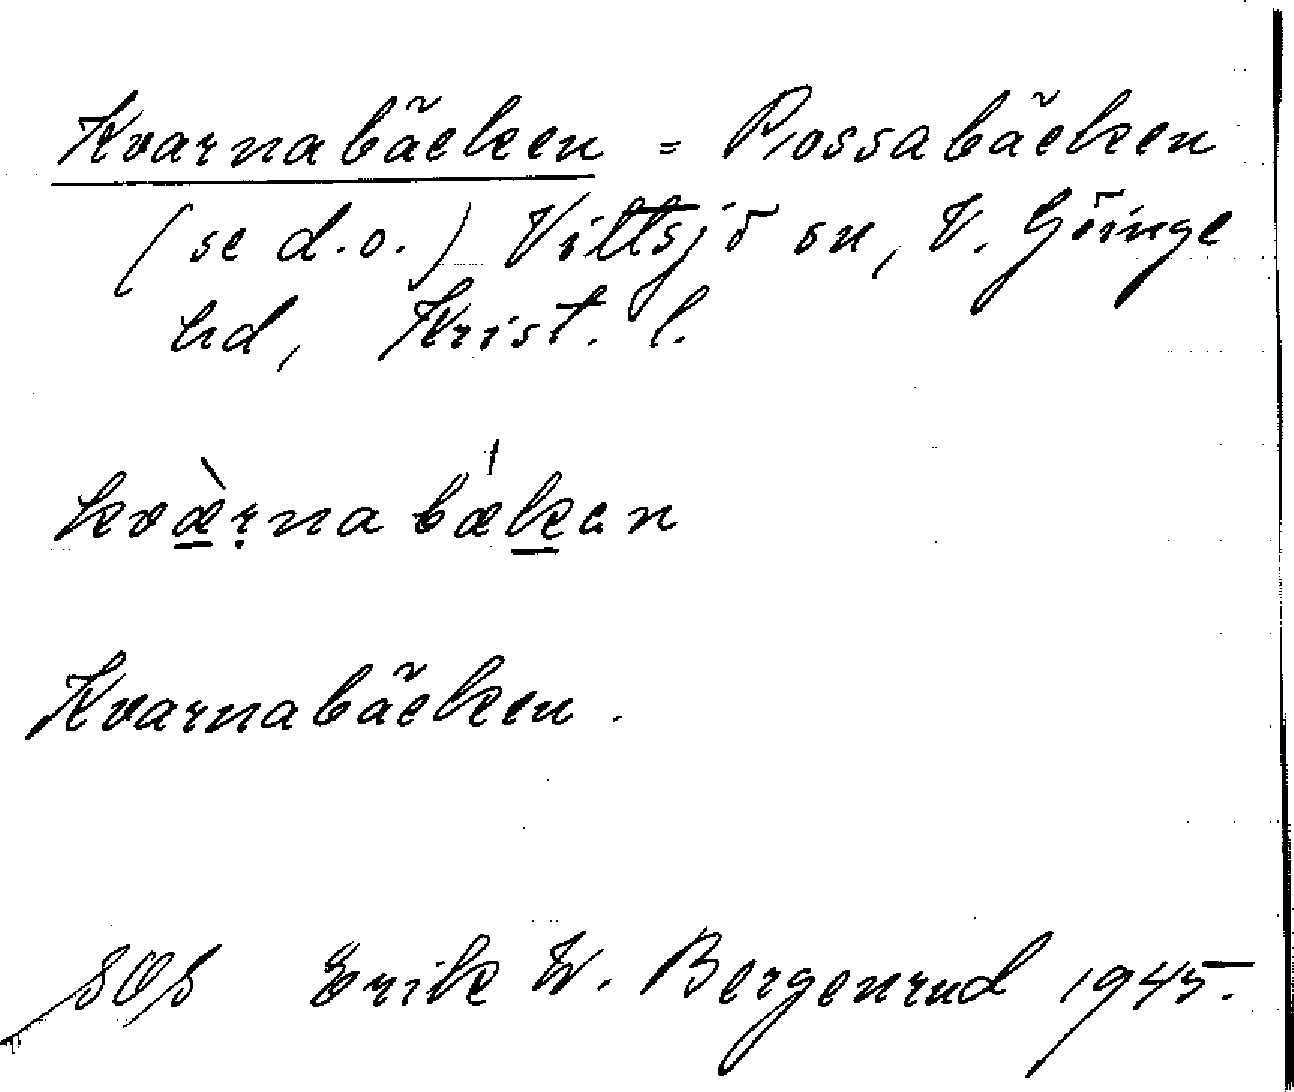 Kvarnabäcken = Rossabäcken
(se d.o.) Vittsjö sn, V. Göinge
hd, Krist. l.
kvæ̀rnabǽkan
Kvarnabäcken.
Erik W. Bergenrud 1945.